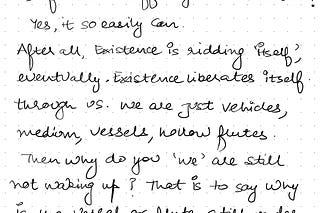 Yes, it so easily can.
After all, Existence is ridding 'itself',
eventually. Existence liberates itself
through us. We are just vehicles,
medium, vessels, hollow flutes.
Then why do you 'we' are still
not waking up? That is to say why